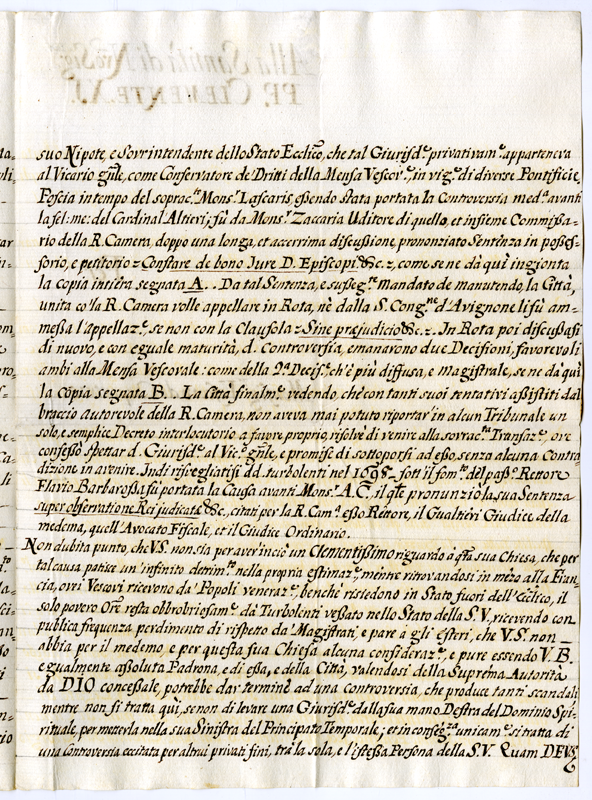 suo Nipote, e Sovrintendente dello Stato Eccli.co, che tal Giurisd.e privativam.e apparteneva
al Vicario gn̄le, come Conservatore de' Dritti della Mensa Vescov.e, in vig.e di diverse Pontificie,
Poscia in tempo del soprac.to Mons.r Lascaris essendo stata portata la Controversia med.a avanti
la fel: me: del Cardinal Altieri; fù da Mons.r Zaccaria Uditore di quello, et insieme Commissa-
rio della R. Camera, doppo una longa, et accerrima discussione, pronunziato Sentenza in posses-
sorio, e petitorio = Constare de bono Jure D. Episcopi &c. =, come se ne dà quì ingionta
la copia intiera segnata A.. Da tal Sentenza, e susseg.te mandato de manutendo, la Città,
unita co' la R. Camera volle appellare in Rota, nè dalla S. Cong.ne d'Avignone li fù am-
messa l'appellaz.e se non con la Clausola = Sine prejudicio &c. =. In Rota poi discussasi
di nuovo, e con eguale maturità, d. Controversia, emanarono due Decisioni favorevoli
ambi alla Mensa Vescovale: come della 2.da Decis.e ch'è più diffusa, e magistrale, se ne dà quì
la copia segnata B.. La Città finalm.e vedendo, che con tanti suoi tentativi assistiti dal
braccio autorevole della R. Camera, non aveva mai potuto riportar' in alcun Tribunale un
solo, e semplice Decreto interlocutorio a favore proprio, risolvè di venire alla sovrac.ta Transaz.e, ove
confessò spettar d. Giurisd.e al Vic.o gn̄le, e promise di sottoporsi ad esso senza alcuna Contra-
dizione in avenire. Indi risvegliatisi dd. turbolenti nel 1695 – sott'il som.to del pass.o Rettore
Flavio Barbarossa fù portata la Causa avanti Mons. A. C., il qt̄e pronunziò la sua Sentenza
super observatione Rei judicatæ &c., citati per la R. Cam.a esso Rettore, il Gualtieri Giudice della
medema, quell'Avocato Fiscale, et il Giudice Ordinario.
Non dubita punto, che V.S. non sia per aver' in ciò un Clementissimo riguardo à qt̄a sua Chiesa, che per
tal causa patisce un' infinito detrim.to nella propria estimaz.e; mentre ritrovandosi in mezo alla Fran-
cia, ov'i Vescovi ricevono da' Popoli veneraz.e, benchè risiedono in Stato fuori dell'Ecclico, il
solo povero Ore resta obbrobriosam.e dà Turbolenti vessato nello Stato della S.V, ricevendo con
publica frequenza perdimento di rispetto da' Magistrati, e pare à gli esteri, che V.S. non
abbia per il medemo, e per questa sua Chiesa alcuna consideraz.e; e pure essendo V. B.
egualmente assoluta Padrona, e di essa, e della Città, valendosi della Suprema Autorità
da DIO concessale, potrebbe dar termine ad una controversia, che produce tanti scandali
mentre non si tratta quì, se non di levare una Giurisd.e dalla sua mano Destra del Dominio Spi-
rituale, per metterla nella sua Sinistra del Principato Temporale; et in conseg.za unicam.e si tratta di
una Controversia eccitata per altrui privati fini, trà la sola, e l'istessa Persona della S.V. Quam DEUS